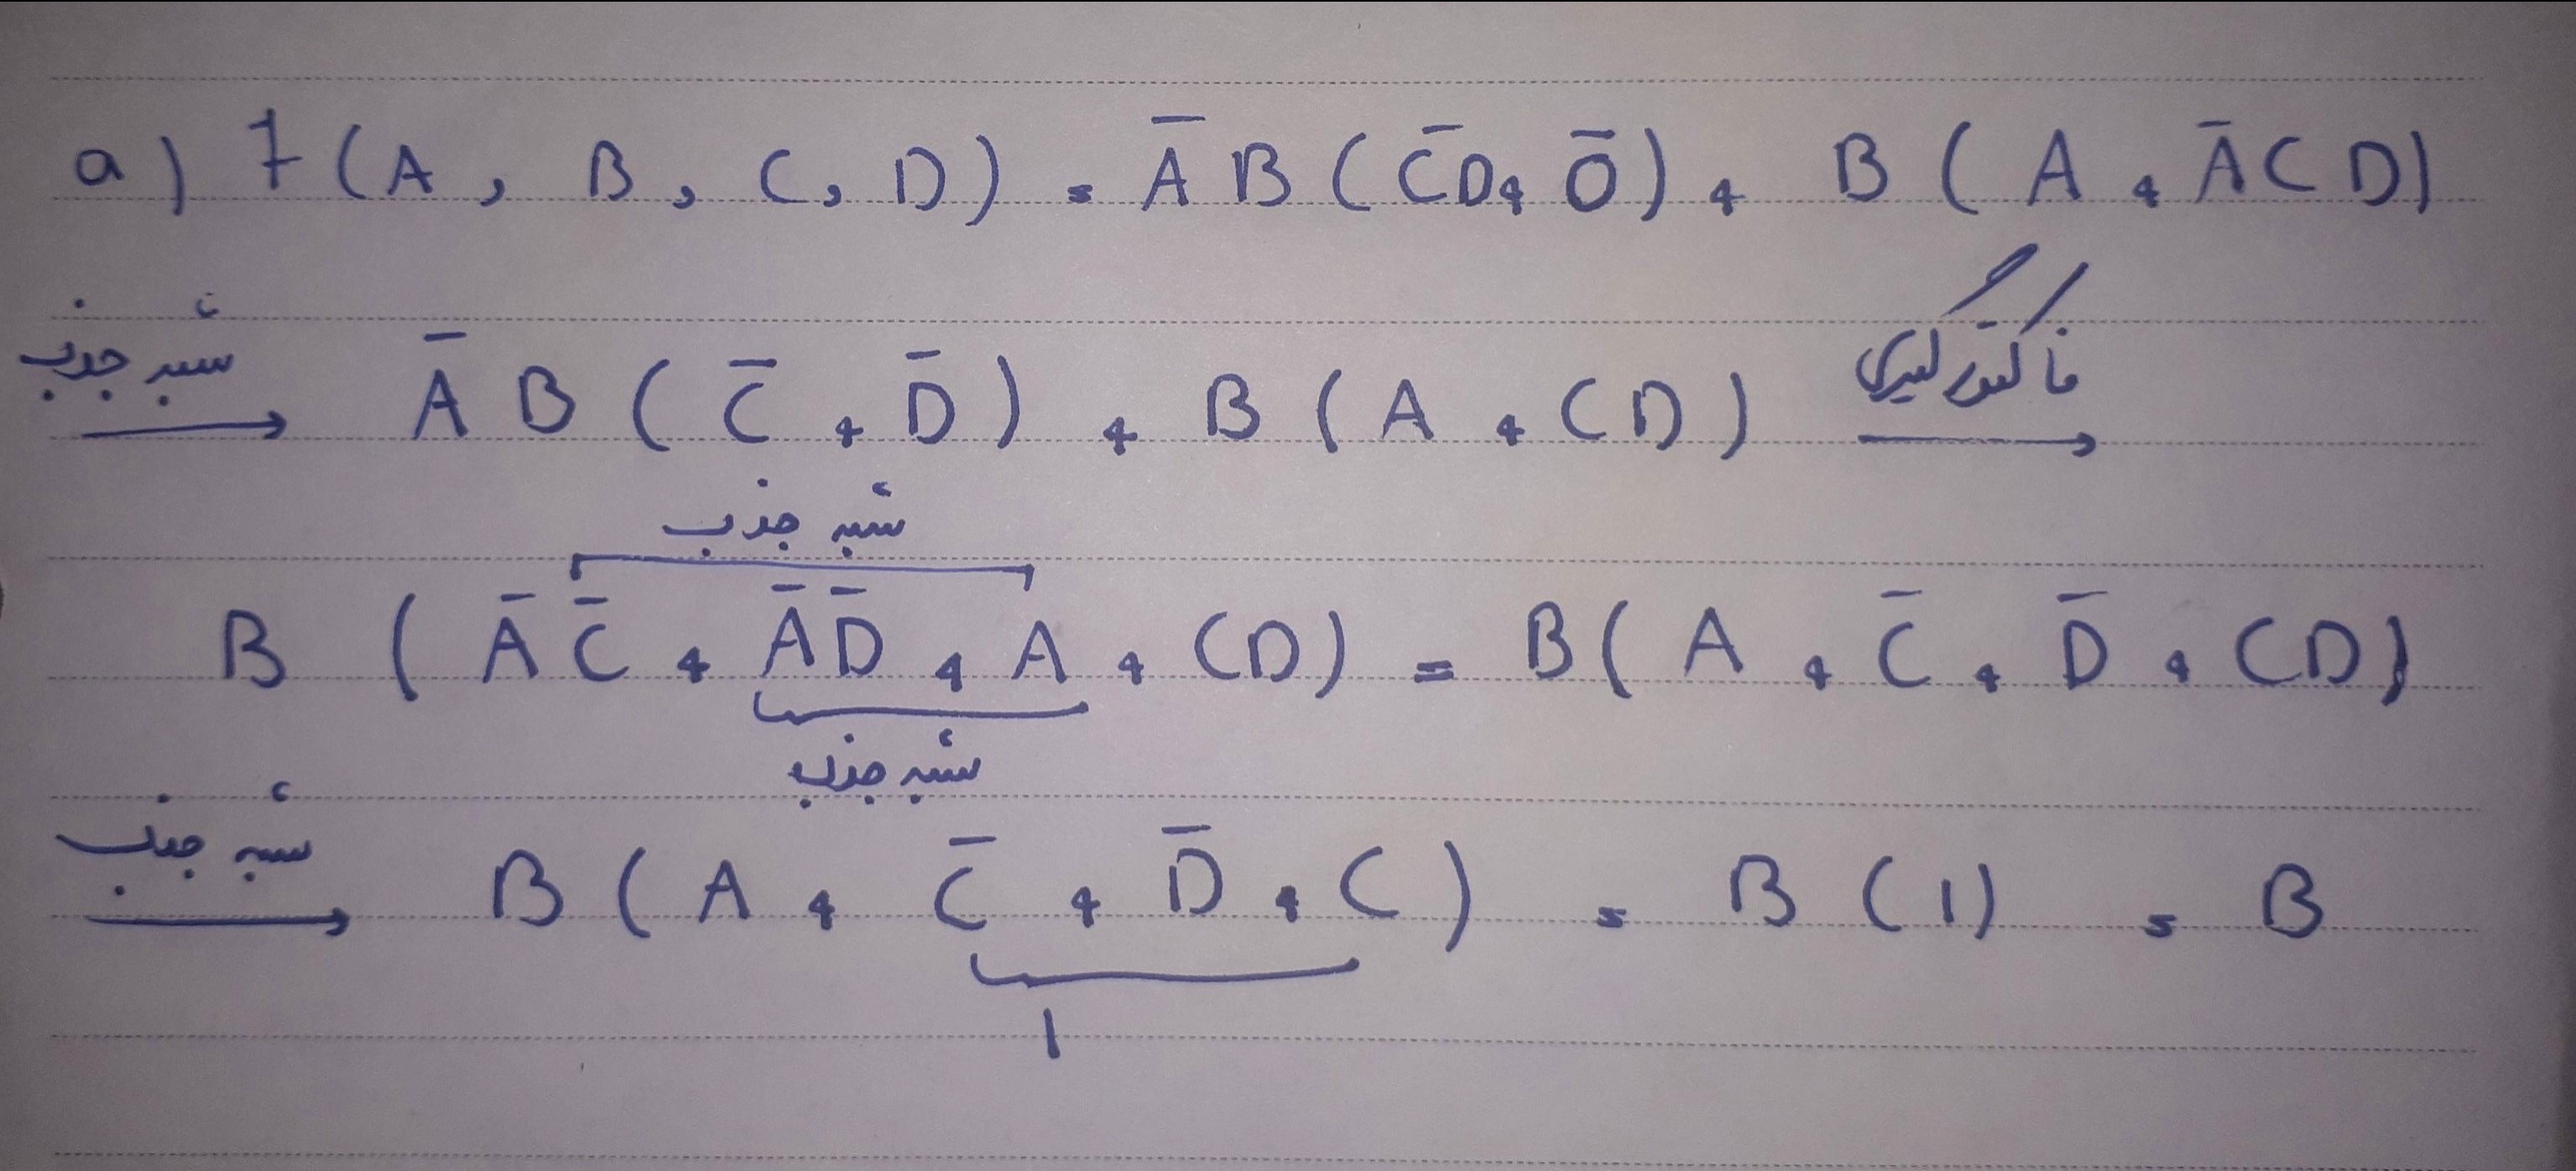 a) f(A, B, C, D) = A̅B(C̅D + D̅) + B(A + A̅CD)
شبه جذب → A̅B(C̅ + D̅) + B(A + CD) فاکتورگیری →
شبه جذب
B(A̅C̅ + A̅D̅ + A + CD) = B(A + C̅ + D̅ + CD)
شبه جذب
شبه جذب → B(A + C̅ + D̅ + C) = B(1) = B
1